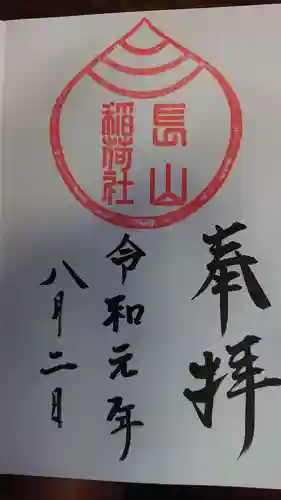 奉拝
長山
稲荷社
令和元年
八月二日